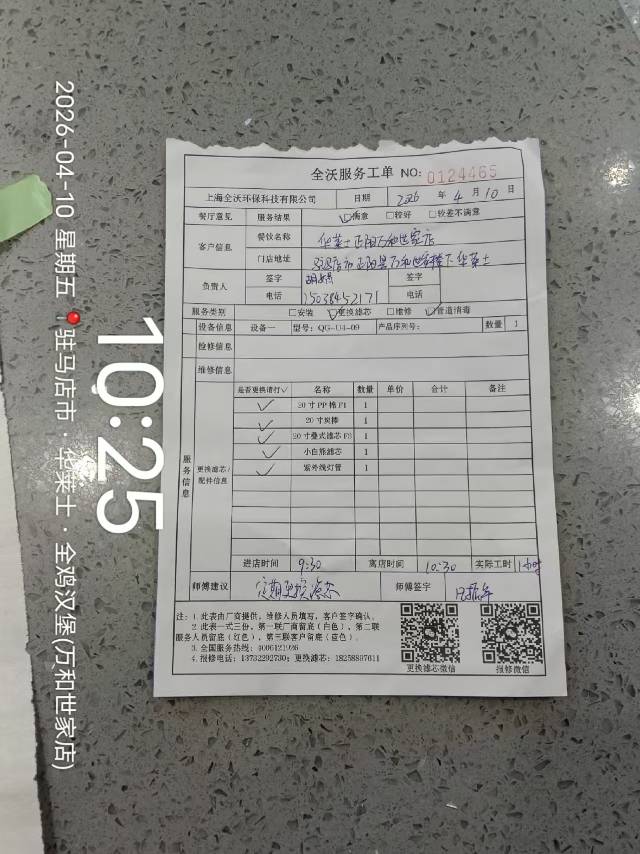 2026-04-10 星期五 📍驻马店市·华莱士·全鸡汉堡(万和世家店)
10:25
全沃服务工单 NO: 0124465
上海全沃环保科技有限公司 日期 2026 年 4 月 10 日
餐厅意见 服务结果 ☑满意 □较好 □较差不满意
客户信息 餐饮名称 华莱士正阳万和世家店
门店地址 驻马店市正阳县万和世家楼下华莱士
负责人 签字 签字
电话 15038452171 电话
服务类别 □安装 ☑更换滤芯 □维修 ☑管道消毒
设备信息 设备一 型号: QG-U4-09 产品序列号: 数量 1
检修信息
维修信息
服务信息 更换滤芯/配件信息
是否更换请打√ 名称 数量 单价 合计 备注
✓ 20寸PP棉F1 1
✓ 20寸炭棒 1
✓ 20寸叠式滤芯F3 1
✓ 小白熊滤芯 1
✓ 紫外线灯管 1
进店时间 9:30 离店时间 10:30 实际工时 1小时
师傅建议 定期更换滤芯 师傅签字
注: 1.此表由厂商提供, 维修人员填写, 客户签字确认。
2.此表一式三份, 第一联厂商留底(白色), 第二联
服务人员留底(红色), 第三联客户留底(蓝色)。
3.全国服务热线: 4006121986
4.报修电话: 13732292730; 更换滤芯: 18258807611
更换滤芯微信 报修微信